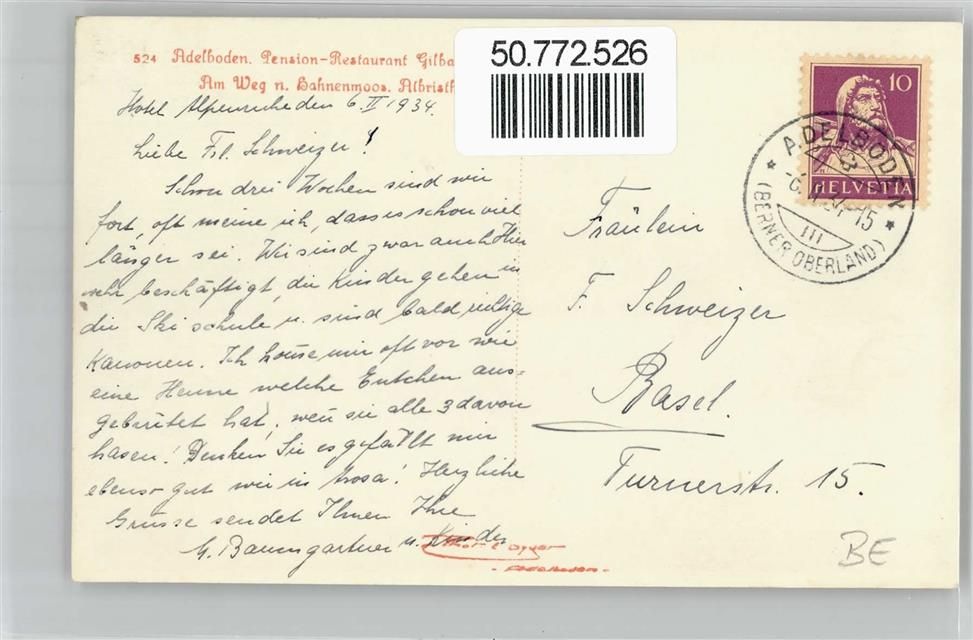 524 Adelboden. Pension-Restaurant Gilba
Am Weg n. Hahnenmoos. Albristh
50.772.526
Hotel Alpenruhe den 6. II 1934.
Liebe Frl. Schweizer!
Schon drei Wochen sind wir
fort, oft meine ich, dass es schon viel
länger sei. Wir sind zwar auch Hier
sehr beschäftigt, die Kinder gehen in
die Ski schule u. sind bald richtige
Kanonen. Ich komme mir oft vor wie
eine Henne welche Entchen aus=
gebrütet hat, wen sie alle 3 davon
hasen! Denken Sie es gefällt mir
ebenso gut wie in Arosa! Herzliche
Grüsse sendet Ihnen Ihre
G. Baumgartner u. Kinder
10
HELVETIA
ADELBODEN
III
(BERNER OBERLAND)
Fräulein
F. Schweizer
Basel.
Turnerstr. 15.
- Adelboden -
BE